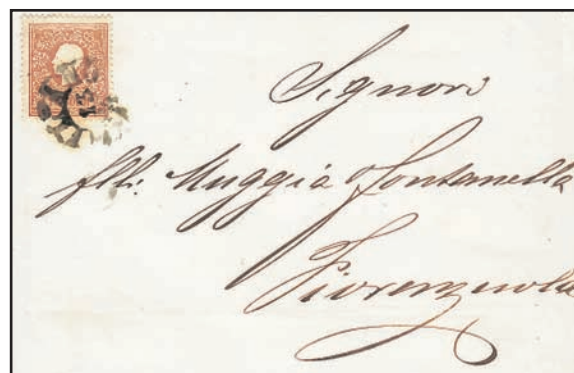 Signori
flli: Muggia & Fontanella
Fiorenzuola